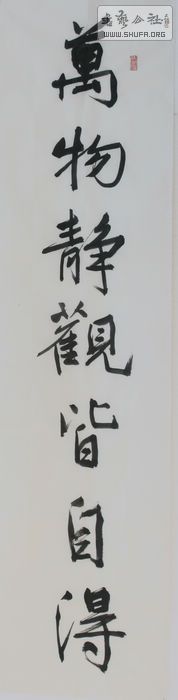 萬物静觀皆自得
書藝公社
WWW.SHUFA.ORG